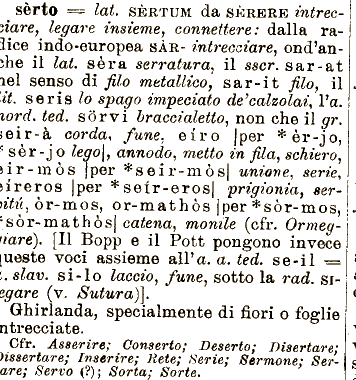 sèrto = lat. SÈRTUM da SÈRERE intrec-
ciare, legare insieme, connettere: dalla ra-
dice indo-europea SAR- intrecciare, ond'an-
che il lat. sèra serratura, il sscr. sar-at
nel senso di filo metallico, sar-it filo, il
lit. seris lo spago impeciato de'calzolai, l'a.
nord. ted. sörvi braccialetto, non che il gr.
seir-à corda, fune, eíro |per *èr-jo,
*sèr-jo lego|, annodo, metto in fila, schiero,
eir-mòs |per *seir-mòs| unione, serie,
eíreros |per *seír-eros| prigionia, ser-
vitú, òr-mos, or-mathòs |per *sòr-mos,
*sòr-mathòs| catena, monile (cfr. Ormeg-
giare). [Il Bopp e il Pott pongono invece
queste voci assieme all'a. a. ted. se-il =
a. slav. si-lo laccio, fune, sotto la rad. SI-
legare (v. Sutura)].
Ghirlanda, specialmente di fiori o foglie
intrecciate.
Cfr. Asserire; Conserto; Deserto; Disertare;
Dissertare; Inserire; Rete; Serie; Sermone; Ser-
rare; Servo (?); Sorta; Sorte.